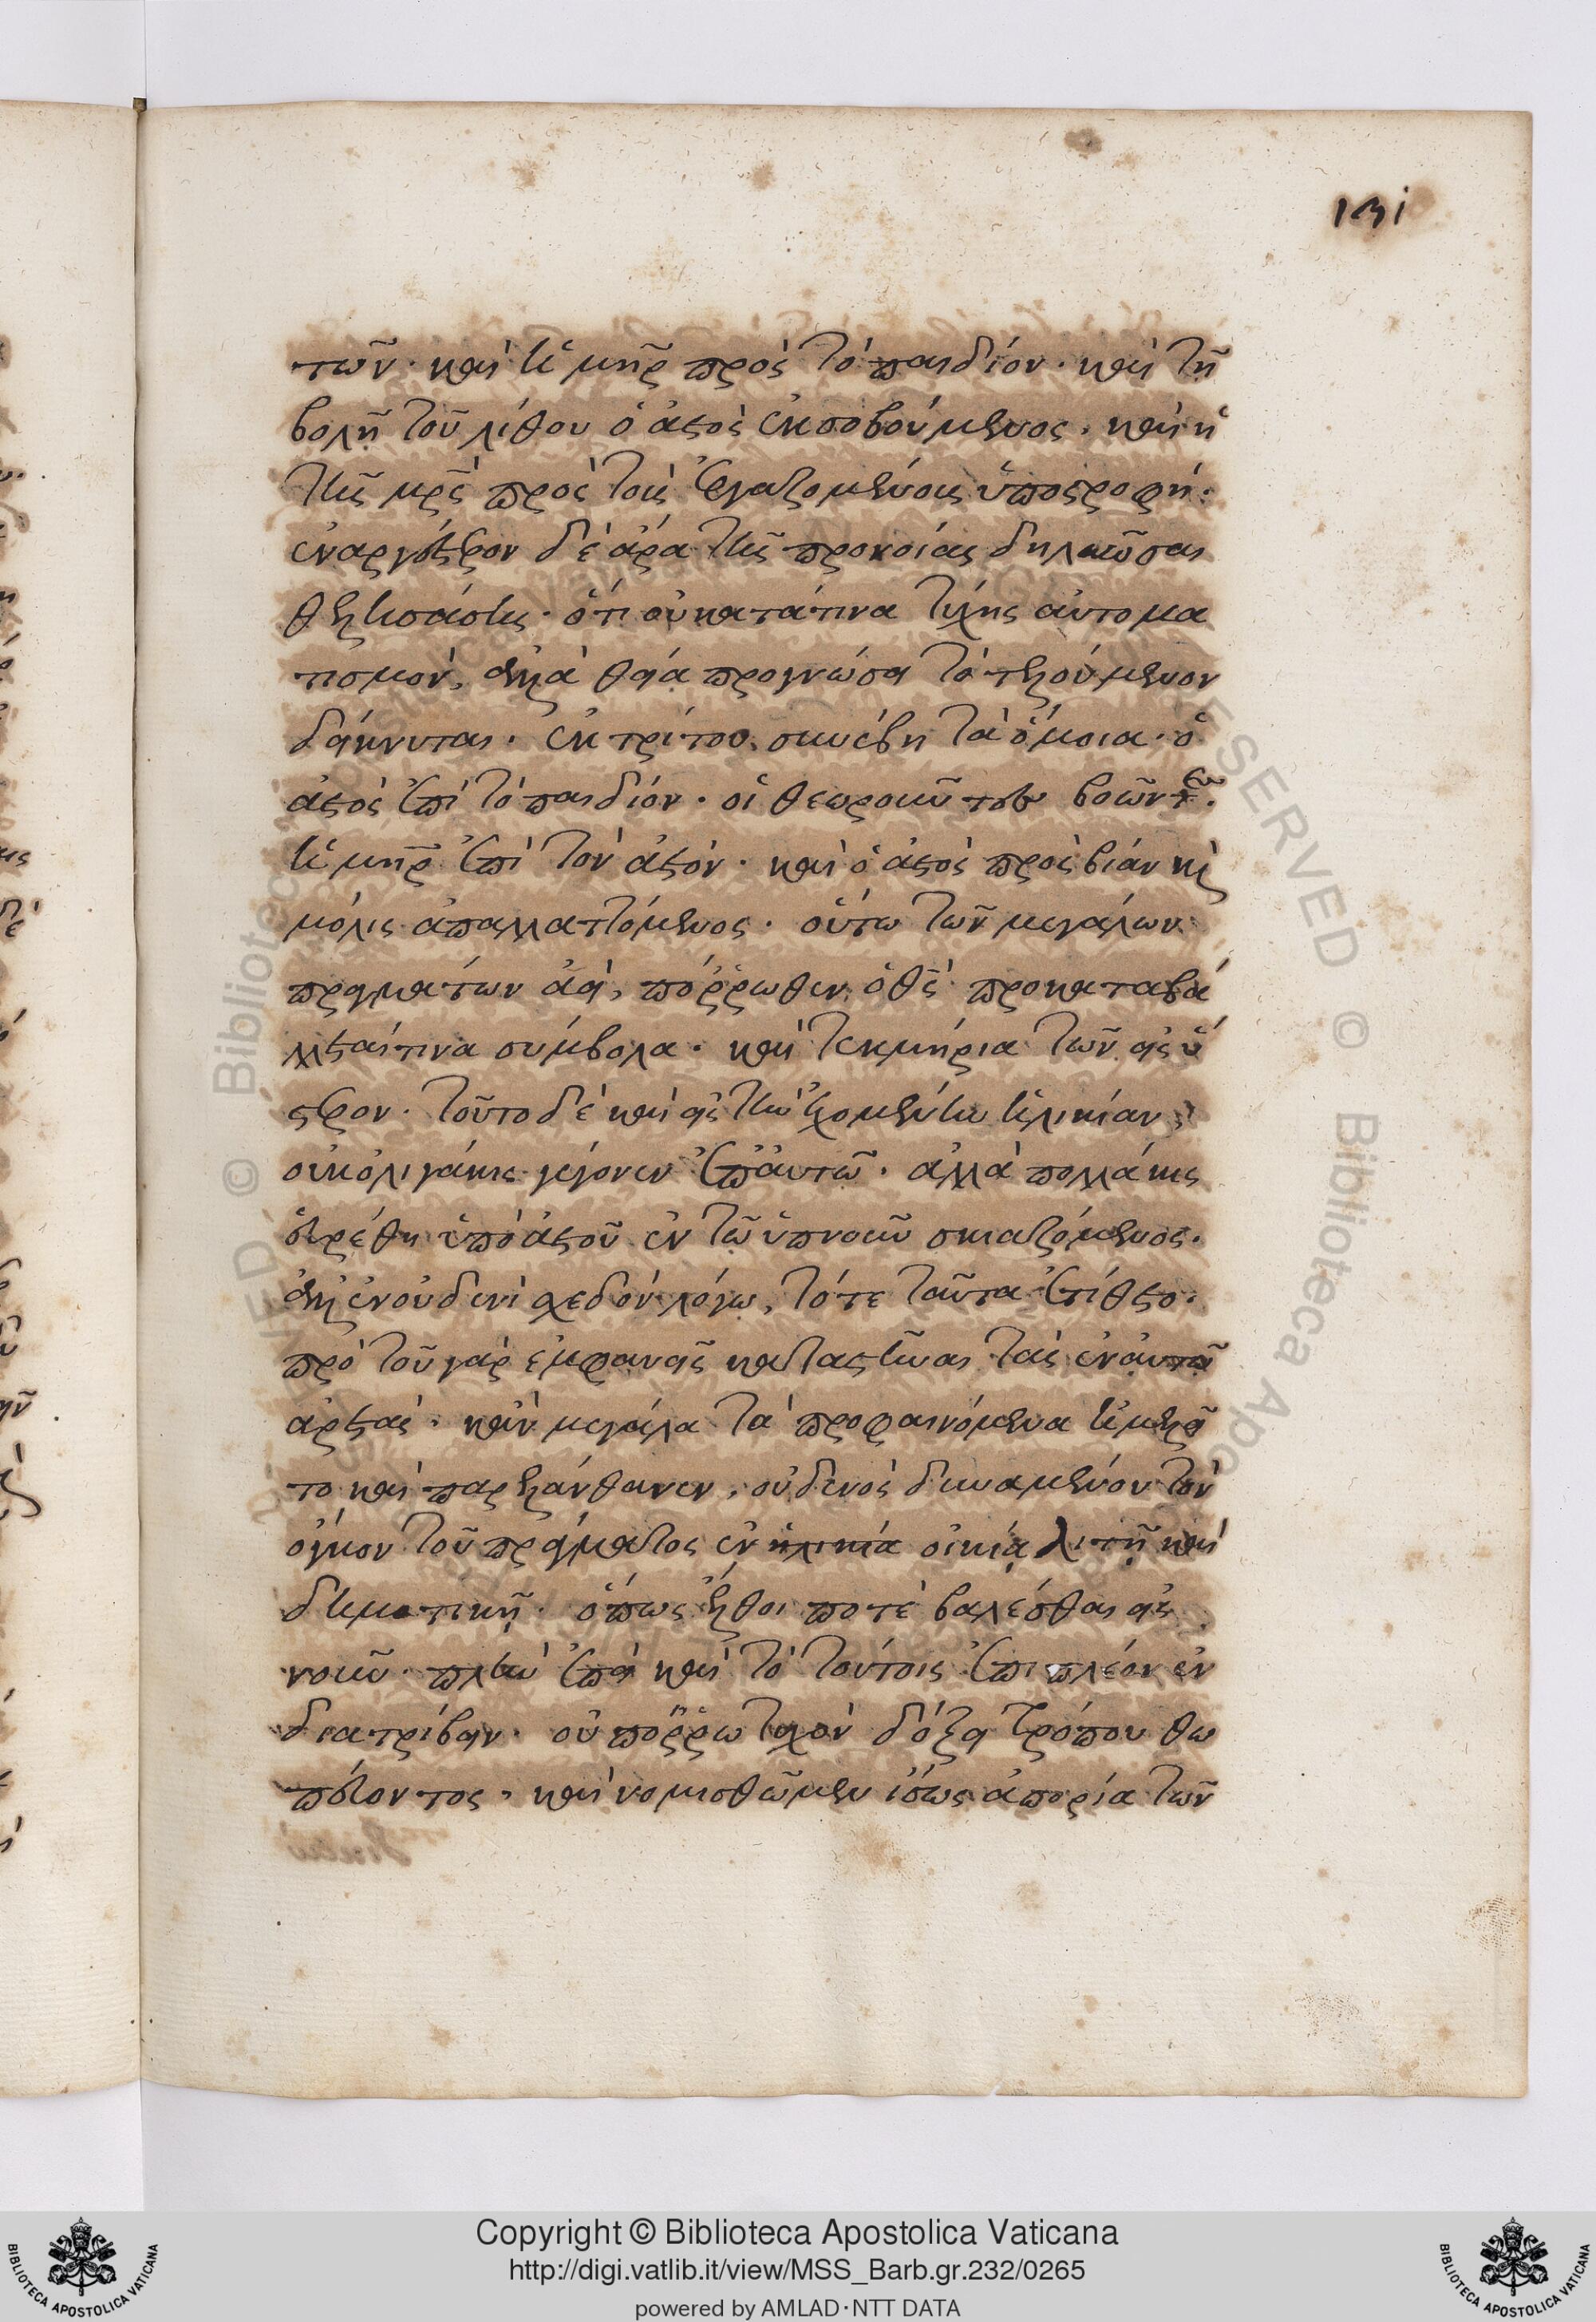 131
των· καὶ ἡ μηρ πρὸς τὸ παιδίον· καὶ τῆ
βολῆ τοῦ λίθου ὁ ἀετὸς ἐκσοβούμενος· καὶ ἡ
τῆς μρς πρὸς τοὺς ἐργαζομένους ὑποστροφή·
ἐναργέστερον δὲ ἄρα τῆς προνοίας δηλῶσαι
θελησάσης· ὅτι οὐ κατά τινα τύχης αὐτομα
τισμὸν, ἀλλὰ θεία προγνώσει τὸ τελούμενον
δείκνυται· ἐκ τρίτου συνέβη τὰ ὅμοια· ὁ
ἀετὸς ἐπὶ τὸ παιδίον· οἱ θεωροῦντες βοῶντες·
ἡ μηρ ἐπὶ τὸν ἀετόν· καὶ ὁ ἀετὸς πρὸς βίαν καὶ
μόλις ἀπαλλαττόμενος· οὕτω τῶν μεγάλων
πραγμάτων ἀεὶ, πόῤῥωθεν ὁ θς προκαταβά
λλεταί τινα σύμβολα· καὶ τεκμήρια τῶν εἰς ὕ
στερον· τοῦτο δὲ καὶ εἰς τὴν ἐχομένην ἡλικίαν,
οὐκ ὀλιγάκις γέγονεν ἐπ' αὐτῶ· ἀλλὰ πολλάκις
εὑρέθη ὑπὸ ἀετοῦ ἐν τῶ ὑπνοῦν σκιαζόμενος·
ἀλλ' ἐν οὐδενὶ σχεδὸν λόγω, τότε ταῦτα ἐτίθετο·
πρὸ τοῦ γὰρ ἐμφανεῖς καταστῆναι τὰς ἐν αὐτῶ
ἀρετὰς· κἂν μεγάλα τὰ προφαινόμενα ἠμελεῖ
το καὶ παρελάνθανεν, οὐδενὸς δυναμένου τὸν
ὄγκον τοῦ πράγματος ἐν ἡλικία οἰκία λιτῆ καὶ
δημοτικῆ· ὅπως ἔλθοι ποτὲ βαλέσθαι εἰς
νοῦν· πλὴν ἐπεὶ καὶ τὸ τούτοις ἐπιπλέον ἐν
διατρίβειν· οὐ πόῤῥω τυχὸν δόξει τρόπου θω
πεύοντος· καὶ νομισθῶμεν ἴσως ἀπορία τῶν
Copyright © Biblioteca Apostolica Vaticana
http://digi.vatlib.it/view/MSS_Barb.gr.232/0265
powered by AMLAD·NTT DATA